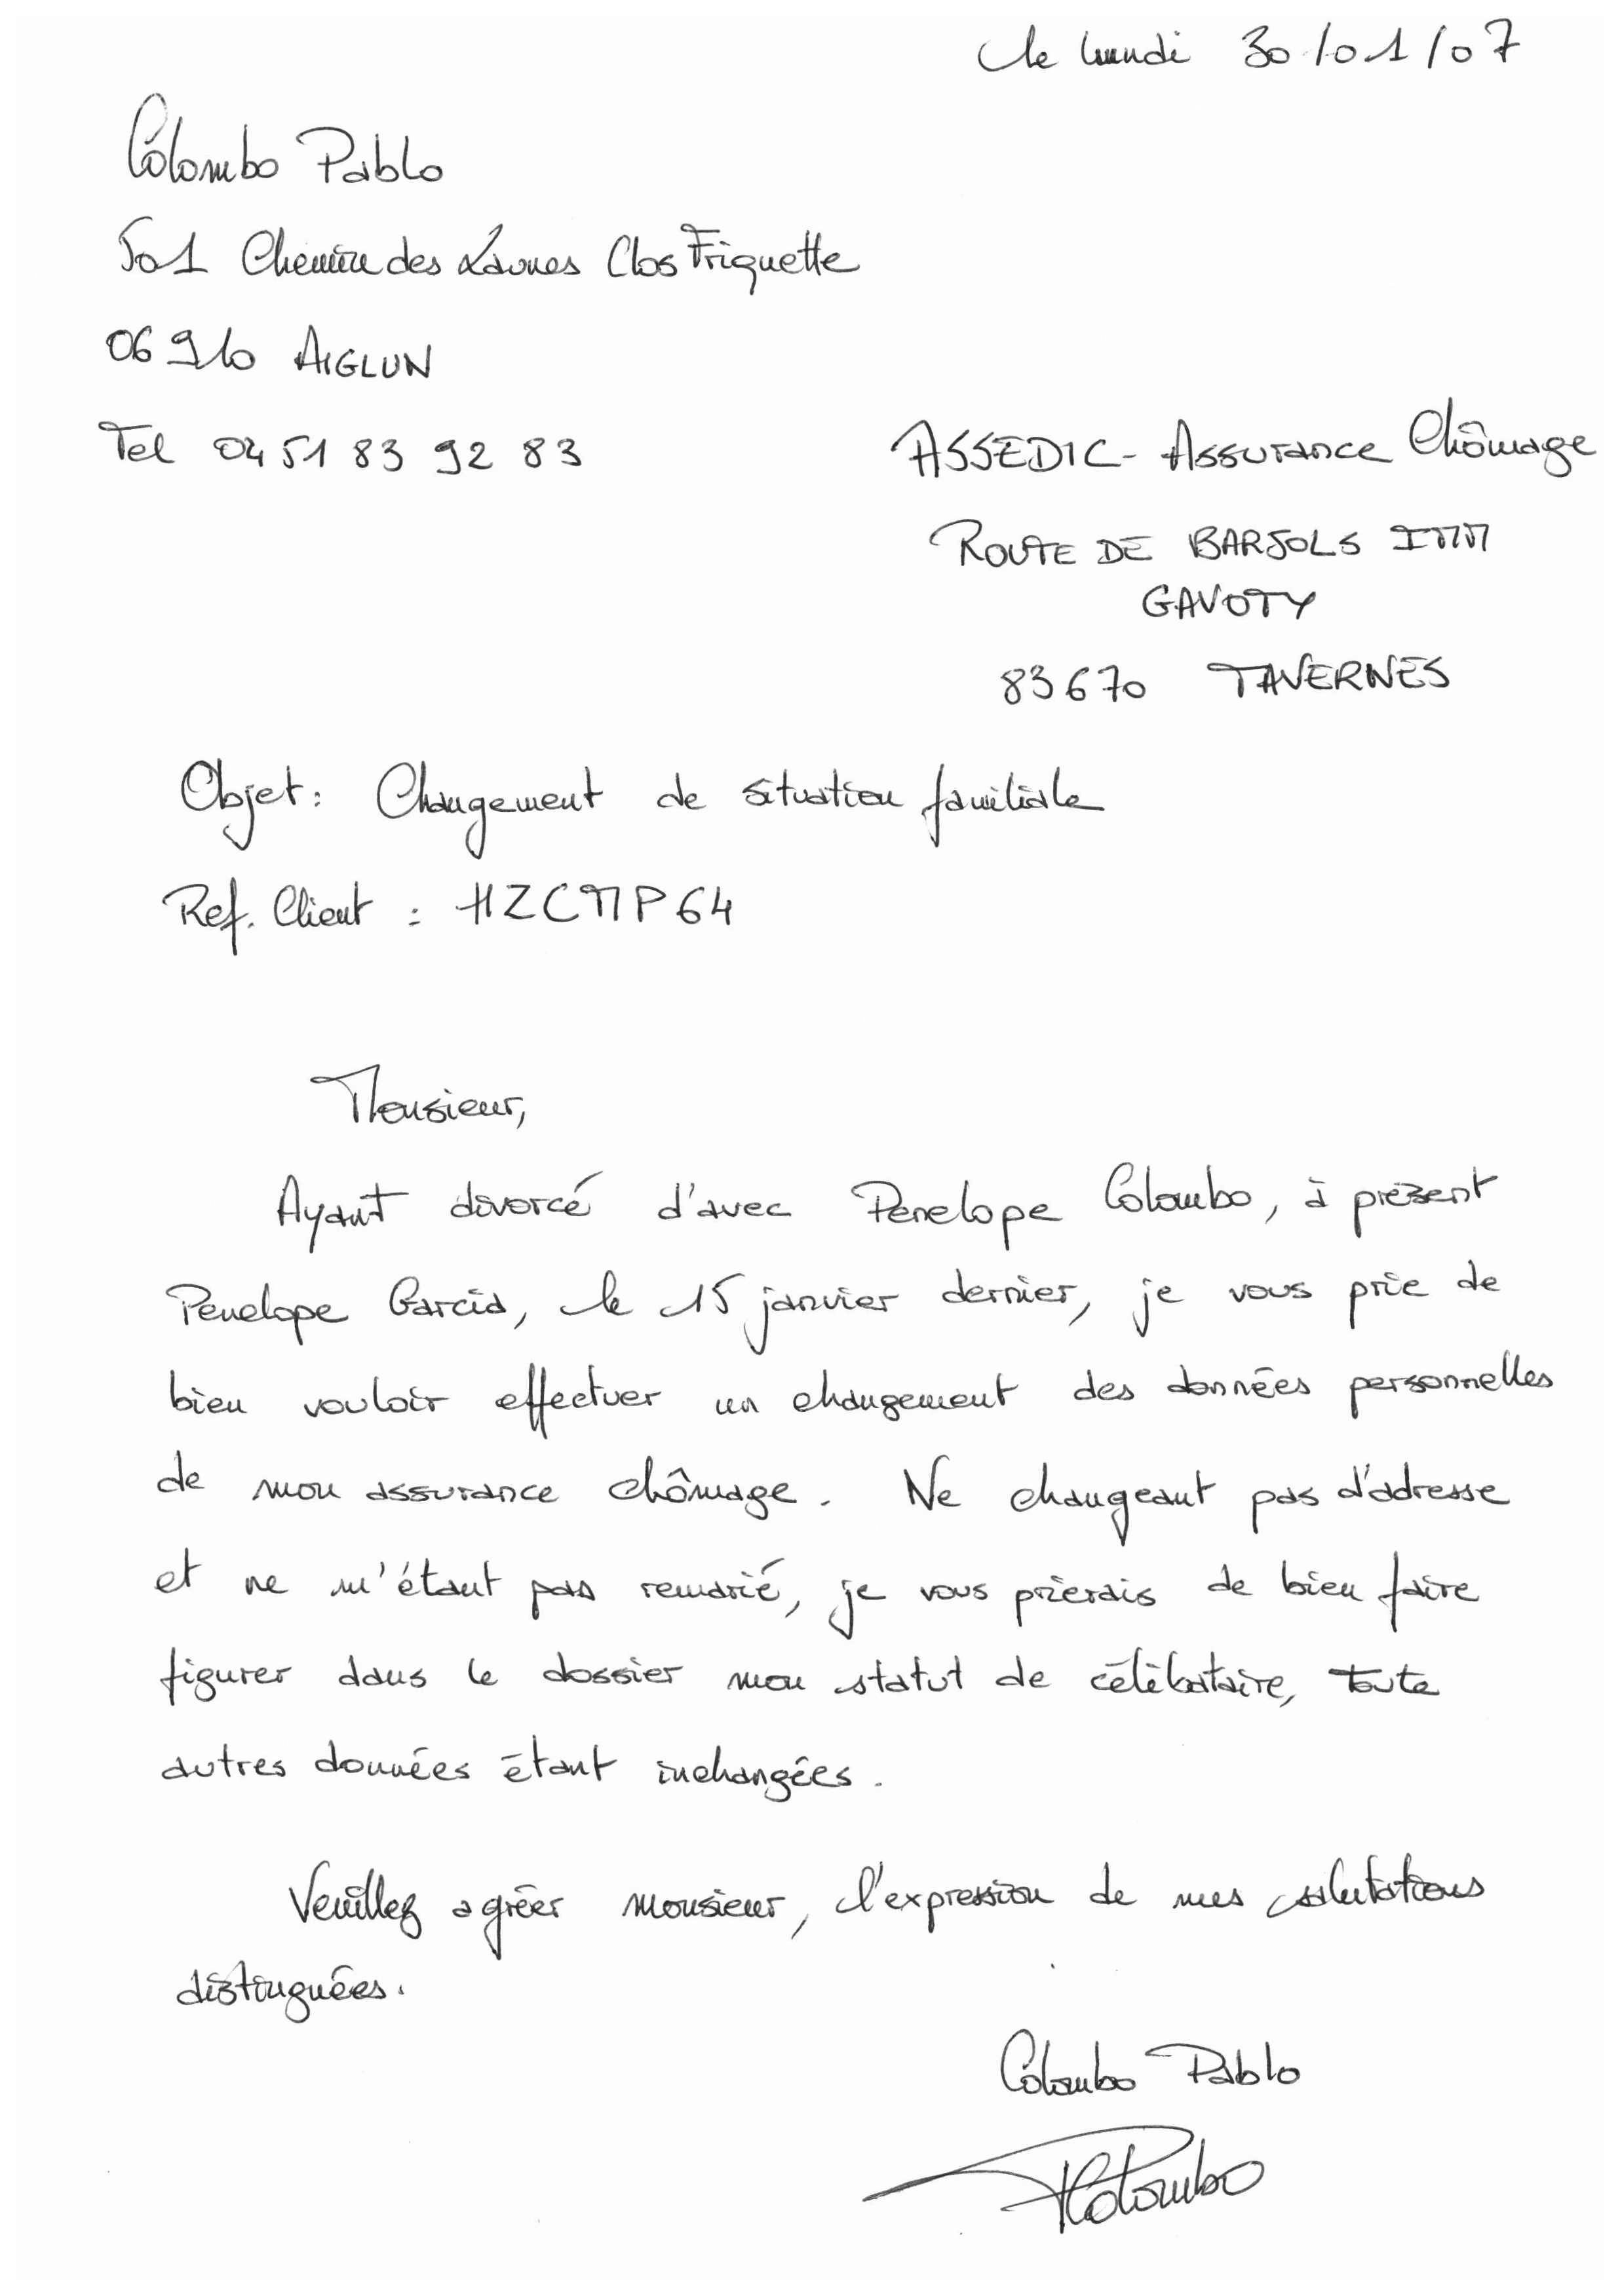 le lundi 30/01/07
Colombo Pablo
501 Chemin des Launes Clos Friquette
06910 AIGLUN
Tel 04 51 83 92 83
ASSEDIC - Assurance Chômage
ROUTE DE BARJOLS IMM
GAVOTY
83670 TAVERNES
Objet : Changement de situation familiale
Ref. Client : HZCMP64
Monsieur,
Ayant divorcé d'avec Penelope Colombo, à présent
Penelope Garcia, le 15 janvier dernier, je vous prie de
bien vouloir effectuer un changement des données personnelles
de mon assurance chômage. Ne changeant pas d'adresse
et ne m'étant pas remarié, je vous prierais de bien faire
figurer dans le dossier mon statut de célibataire, toute
autres données étant inchangées.
Veuillez agréer monsieur, l'expression de mes salutations
distinguées.
Colombo Pablo
PColombo